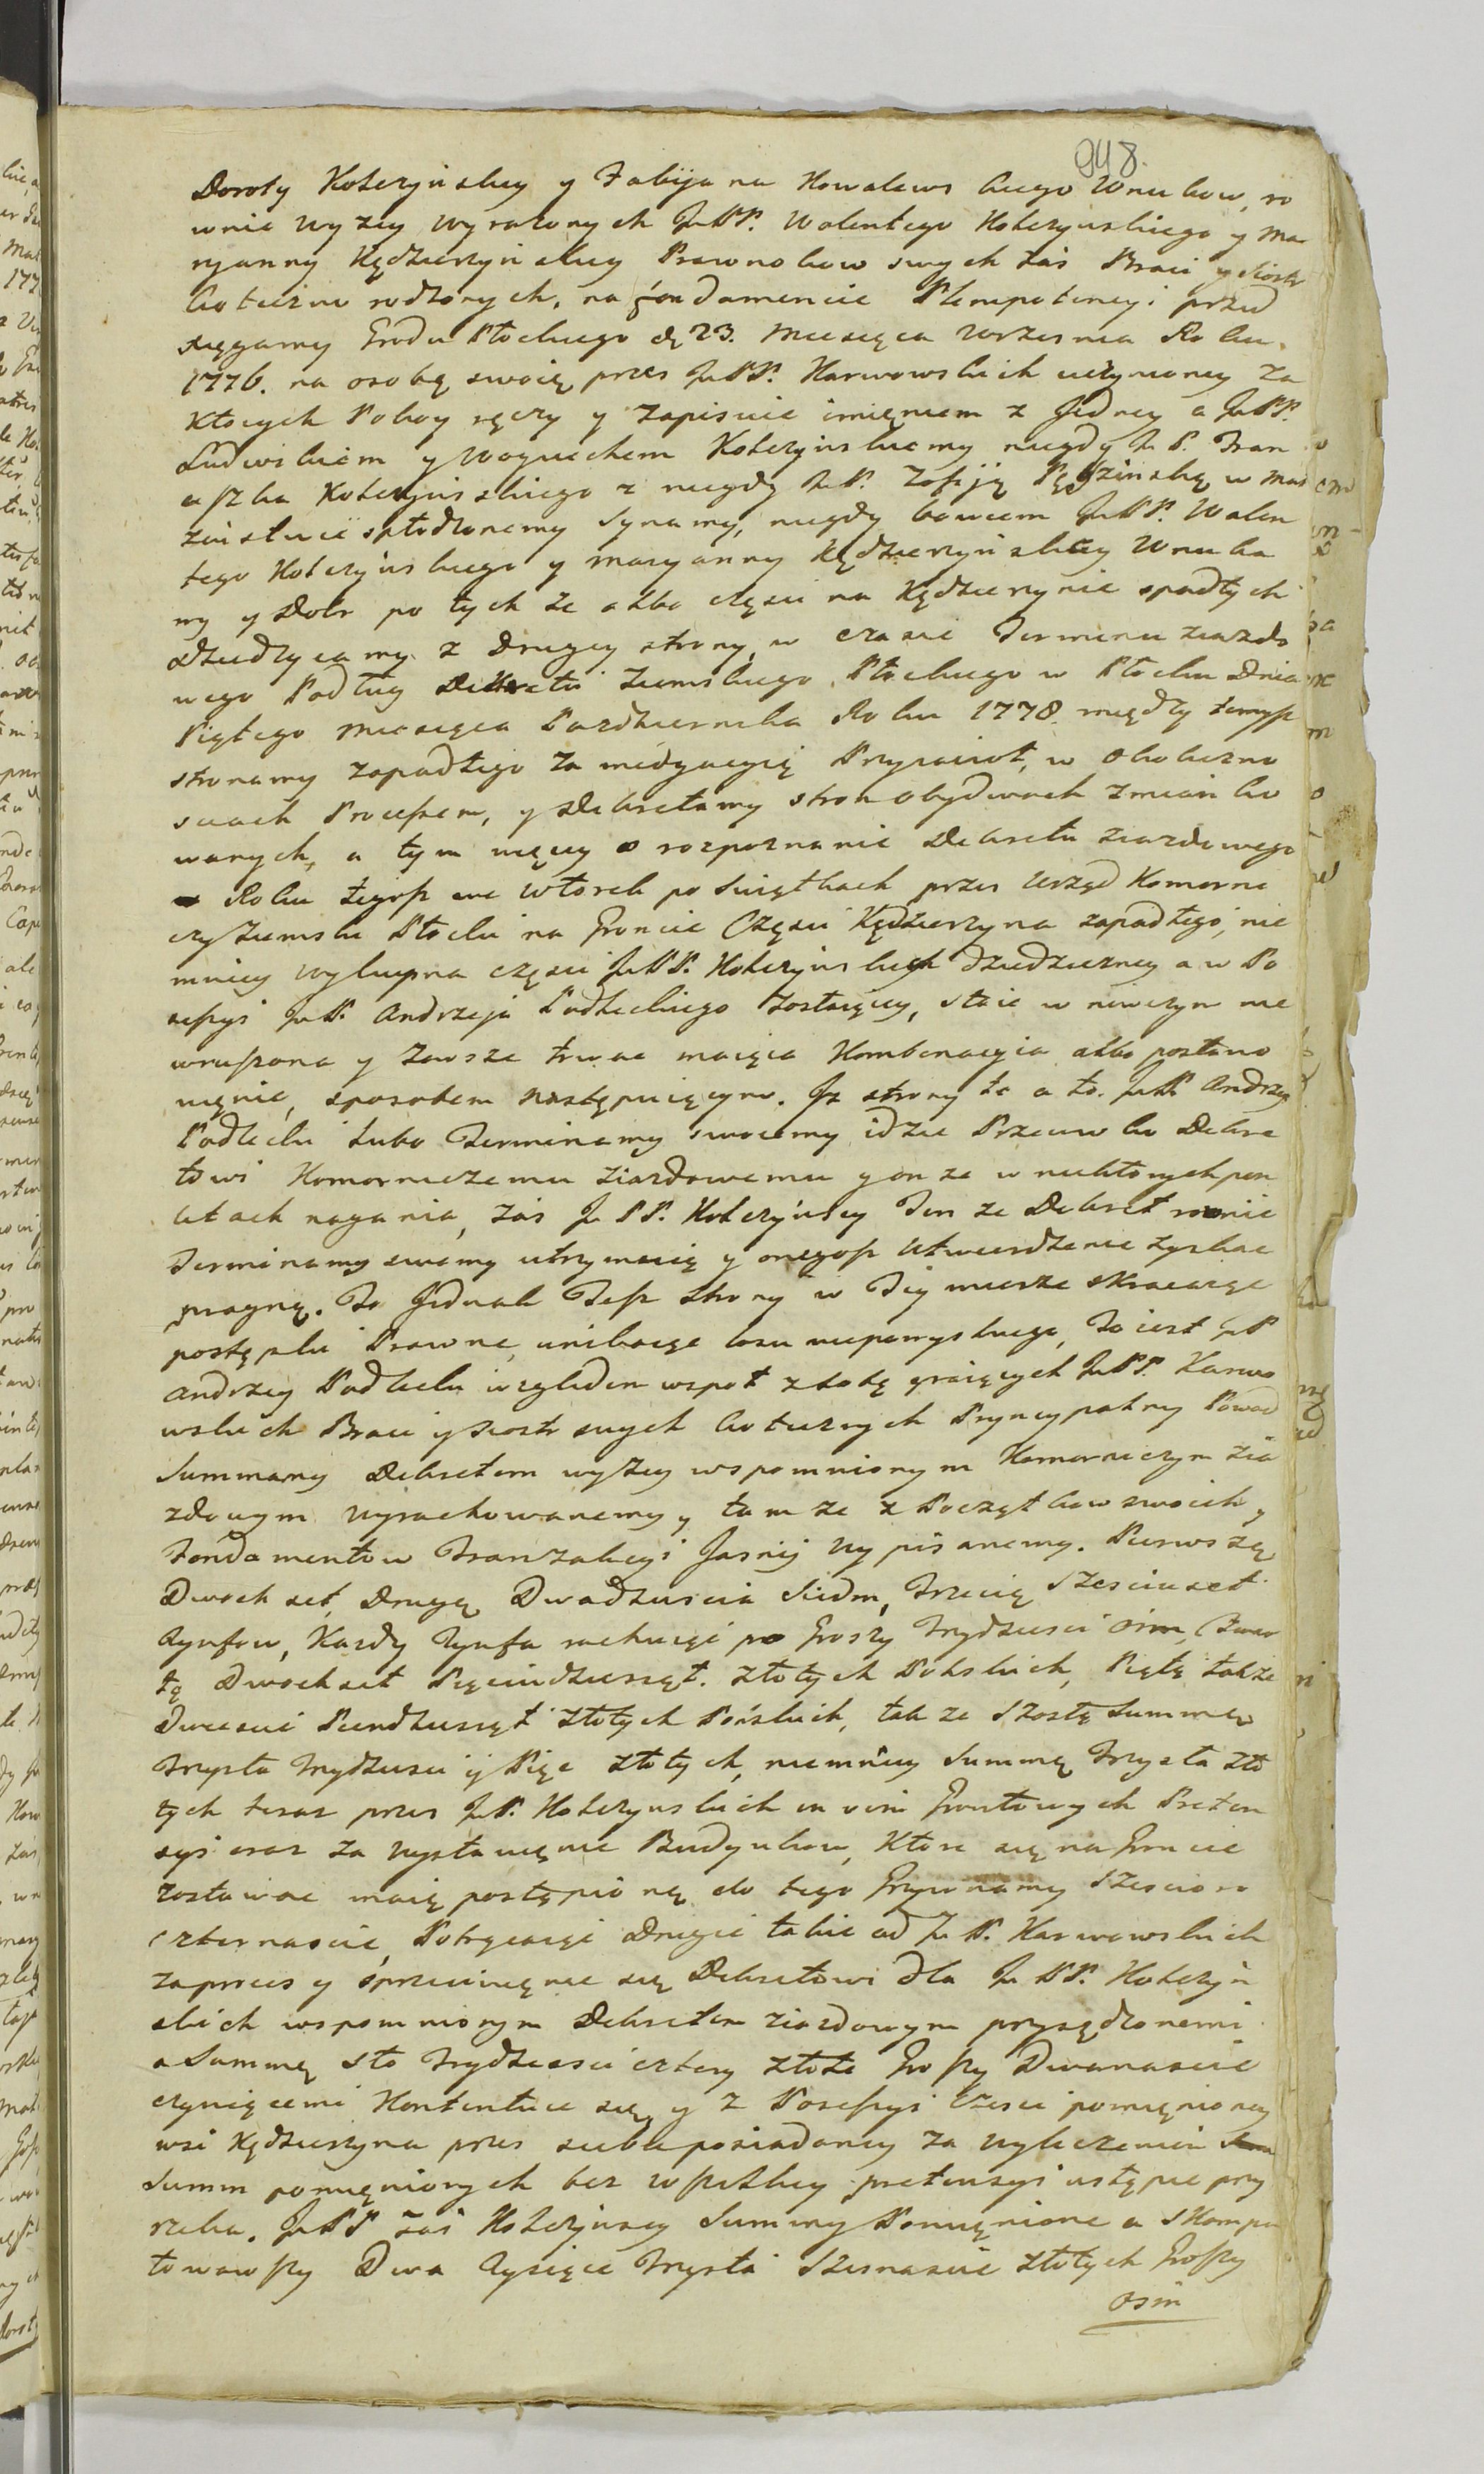 948.
Doroty Koteryńskiey y Fabijana Kowalewskiego Wnukow, ro
wnie wyzey wyrazonych JmPP. Walentego Koteryńskiego y Ma
ryanny Kędzierzyńskiey Prawnokow swych zaś Braci y Siostr
Ciotecznie rodzonych, na fondamencie Plenipotencyi przed
xięgamy Grodu Płockiego d. 23. Miesięca Wrzesnia Roku
1776. na osobę swoię przez JmPP. Karwowskich uczynioney za
Ktorych Poboy ręczy y zapisuie imięniem z Jedney a JmPP.
Ludwikiem y Woyciechem Koteryńskiemy niegdy Jm P. Fran
ciszka Koteryńskiego z niegdy Jm P. Zofiję Pędzińską w mał
zeństwie spłodzonemy Synamy, niegdy bowiem JmPP. Walen
tego Koteryńskiego y Maryanny Kędzierzyńskiey Wnuka
my y Dobr po tych ze albo częsci na Kędzierzynie spadłych
Dziedzicamy z Drugiey strony, w czasie Terminu ziazdo
wego Podług Dekretu Ziemskiego Płockiego w Płocku Dnia
Piątego Miesięca Pazdziernika Roku 1778. między temyż
stronamy zapadłego za medyacyię Przyiacioł, w okoliczno
sciach Processem, y Dekretamy stron obydwoch zmiankow
wanych, a tym więcey o rozpoznanie Dekretu ziazdowego
Roku tegoż we Wtorek po Swiątkach przez Urząd Komorni
czy Ziemski Płocki na Groncie Częsci Kędzierzyna zapadłego, nie
mniey wykupna częsci JmPP. Koteryńskich dziedziczney a w Po
sessyi JmP. Andrzeja Podleckiego zostaięcey, staie w niwczym nie
wruszona y zawsze trwac maięca Kombinacyia albo postano
więnie, sposobem następuięcym. Iz strony te a to. JmP. Andrzey
Podlecki lubo Terminamy swoiemy idzie Przeciwko Dekre
towi Komorniczemu ziazdowemu y on ze w niektorych pon
ktach nagania, zaś Jm PP. Koteryńscy Ten ze Dekret rownie
Terminamy swemy utrzymuię y onegoż utwierdzenie zyskac
pragnę. To Jednak Też strony w Tey mierze skracaięc
postępki Prawne, unikaięc losu niepomyslnego, To iest JmP
Andrzey Podlecki względem wspoł z sobę graięcych JmPP. Karwo
wskich Braci y siostr swych Ciotecznych Pryncypalny Powod
Summamy Dekretem wyzey wspomnionym Komorniczym zia
zdowym wyrachowanemy, tam ze z Początkow swoich y
Fondamentow Tranzakcyi Jasniey wypisanemy. Pierwszę
Dwoch set, Drugę Dwadziescia Siedm, Trzecię Szesciuset
Tynfow, Kazdy Tynfa rachuięc po Groszy Trydziesci Osm, Czwar
tę Dwoch set Pięcudziesięt. złotych Polskich, Piętę takze
Dwiescie Piendziesięt złotych Polskich, tak ze Szostę Summę
Trysta Trydziesci y Pięc złotych, niemniey Summę Trysta zło
tych teraz przez JmP. Koteryńskich in vim Gruntowych Preten
syi oraz za wystawięnie Budynkow, Ktore się na Groncie
zostawac maię postępionę do tego Grzywnamy Szescioro
czternascie, Potrycaięc Drugie takie od Jm P. Karwowskich
zaprzes y sprzeciwięnie się Dekretowi dla Jm PP. Koteryń
skich wspomnionym Dekretem ziazdowym przysędzonemi
a Summę sto Trydziesci cztery złote Groszy Dwanascie
czynięcemi Kontentuie się, y z Possessyi Czesci pomięnioney
wsi Kędzierzyna przez siebie posiadaney za wyliczeniem
Summ pomięnionych bez wszelkiey pretensyi ustępic przy
rzeka. JmPP zaś Koteryńscy Summy Pomięnione a Skompu
towawszy Dwa Tysięce Trysta Szesnascie złotych Groszy
osm